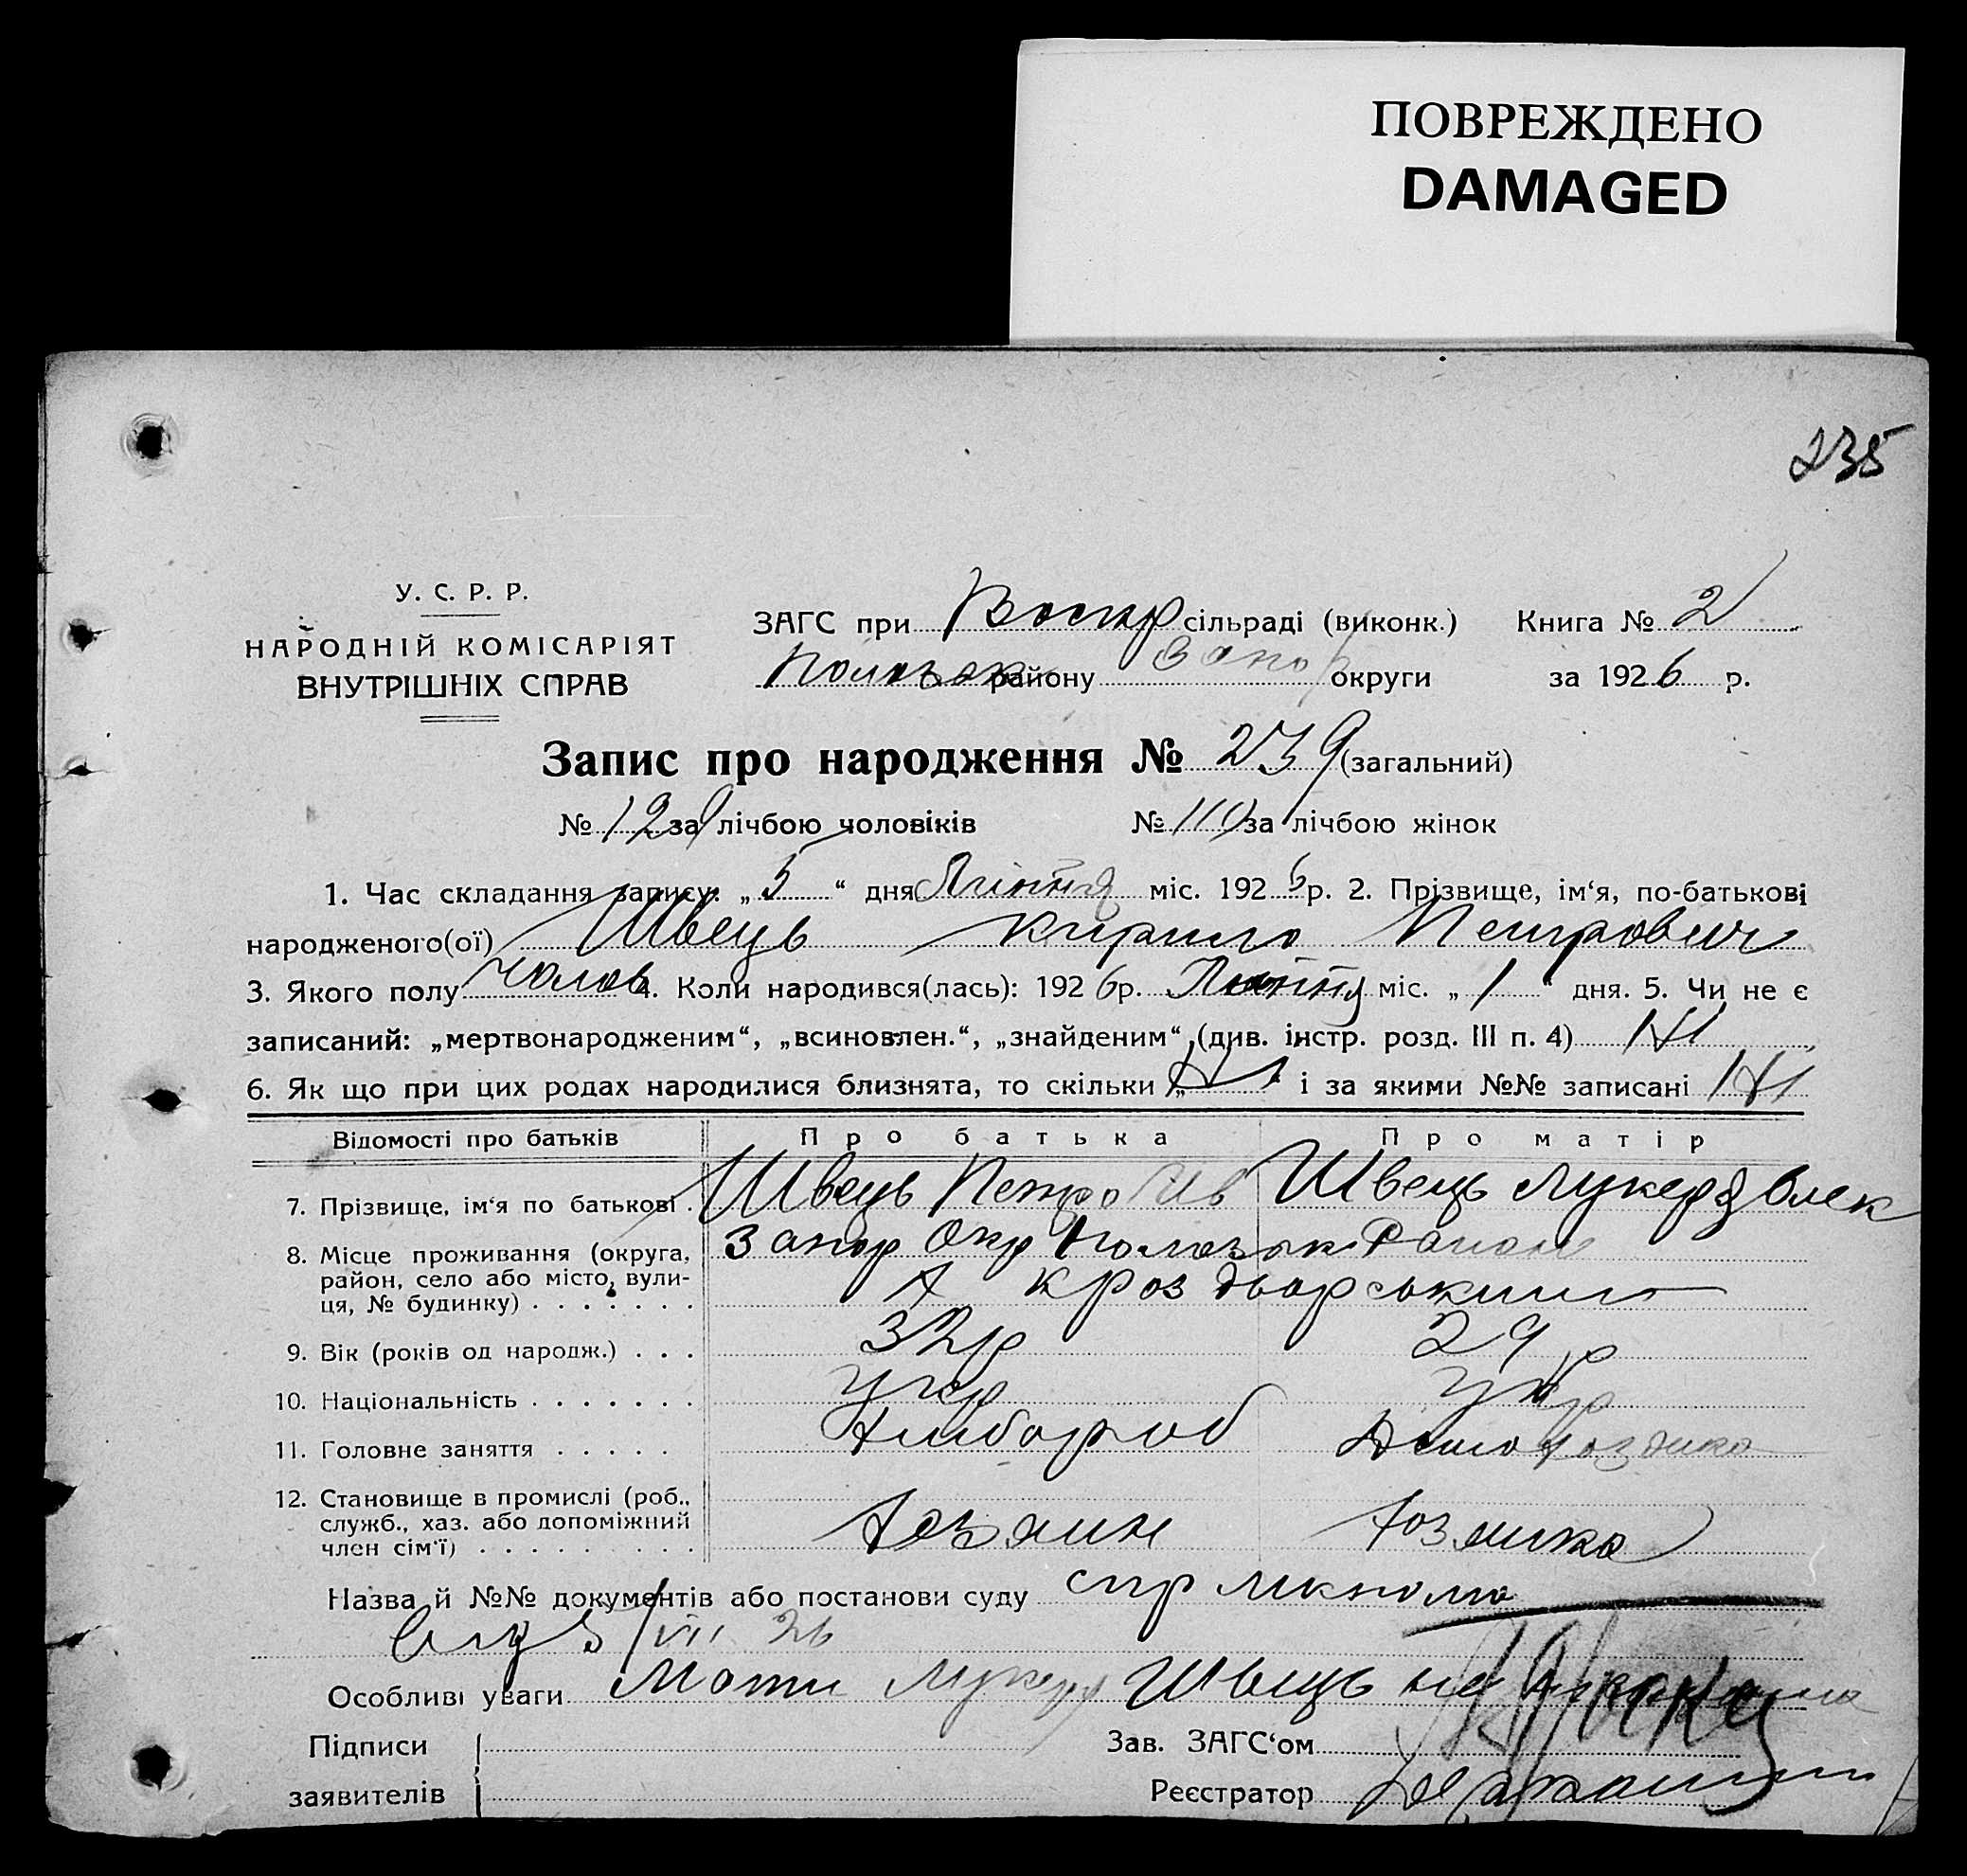 ПОВРЕЖДЕНО
DAMAGED
235
У. С. Р. Р.
НАРОДНІЙ КОМІСАРІЯТ
ВНУТРІШНІХ СПРАВ
ЗАГС при Воскр сільраді (виконк.) Книга № 2
району Запор округи за 1926 р.
Запис про народження № 239 (загальний)
№ 129 за лічбою чоловіків № 110 за лічбою жінок
1. Час складання запису: „ 5 “ дня Липня міс. 1926 р. 2. Прізвище, ім‘я, по-батькові
народженого(ої) Швець Кирило Петрович
3. Якого полу чолов 4. Коли народився(лась): 1926 р. Липня міс. „ 1 “ дня. 5. Чи не є
записаний: „мертвонародженим“, „всиновлен.“, „знайденим“ (див. інстр. розд. III п. 4) Ні
6. Як що при цих родах народилися близнята, то скільки „ Ні “ і за якими №№ записані Ні
Відомості про батьків Про батька Про матір
7. Прізвище, ім‘я по батькові . Швець Петро Ив Швець Лукеря Олек
8. Місце проживання (округа, район, село або місто, вулиця, № будинку) . . . . . . . Запор Окр Район
9. Вік (років од народж.) . . . 32 р 29 р
10. Національність . . . . . . . Укр Укр
11. Головне заняття . . . . . Хлібороб Домохозяйка
12. Становище в промислі (роб., служб., хаз. або допоміжний член сім‘ї) . . . . . . . . . Хозяин Хозяйка
Назва й №№ документів або постанови суду спр
від 5/VII 26
Особливі уваги Мати Лукеря Швець не
Підписи Зав. ЗАГС‘ом
заявителів Реєстратор